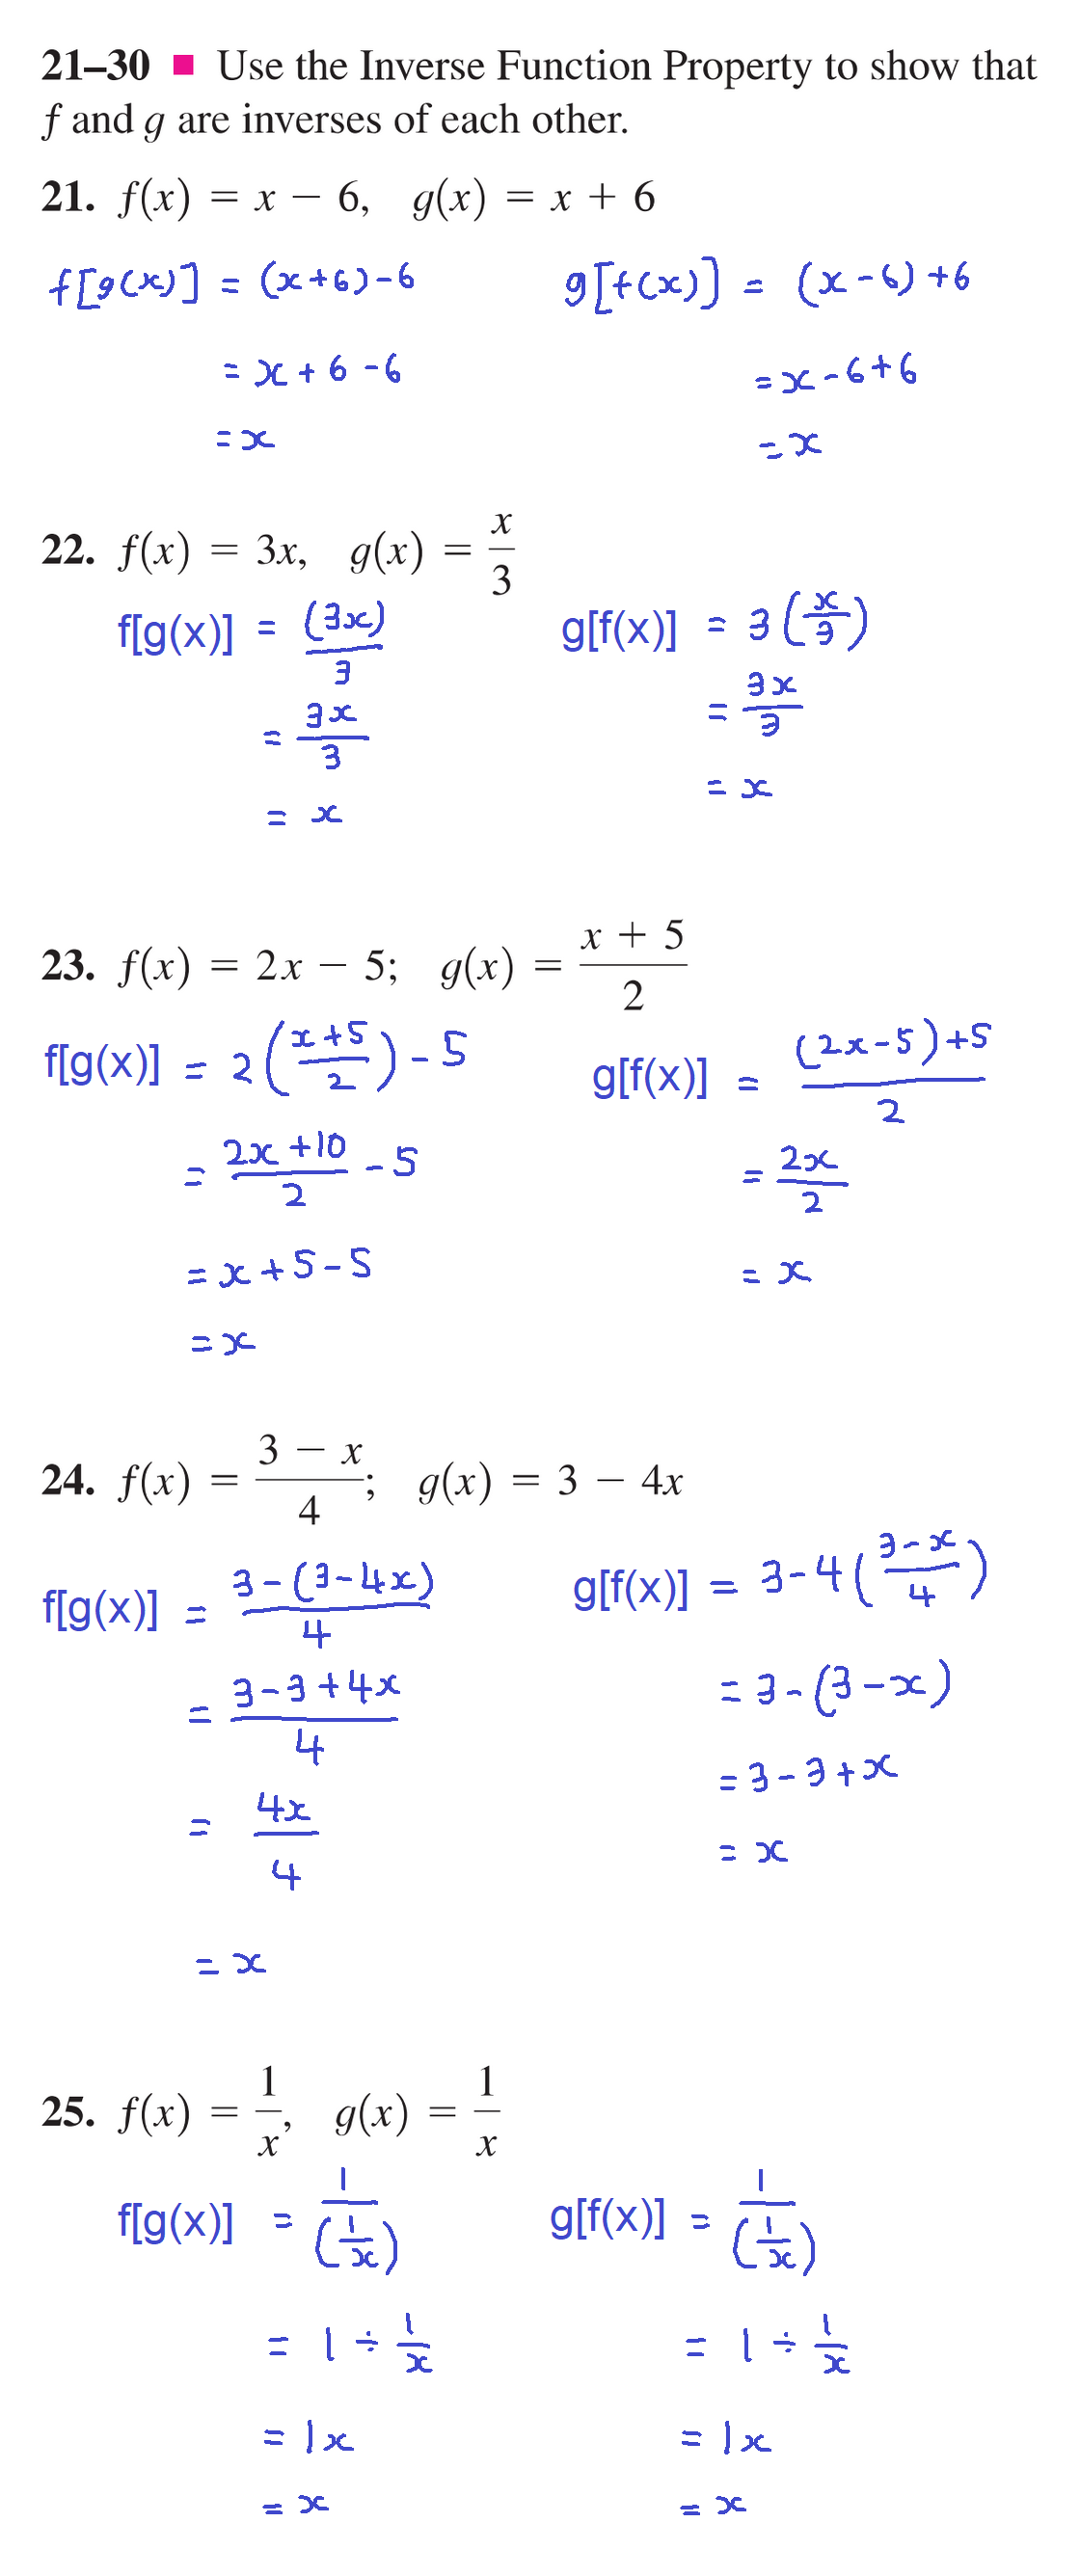 21–30 ■ Use the Inverse Function Property to show that
f and g are inverses of each other.
21. f(x) = x − 6, g(x) = x + 6
f[g(x)] = (x+6)-6
= x + 6 - 6
= x
g[f(x)] = (x-6)+6
= x - 6 + 6
= x
22. f(x) = 3x, g(x) = x/3
f[g(x)] = (3x)/3
= 3x/3
= x
g[f(x)] = 3(x/3)
= 3x/3
= x
23. f(x) = 2x − 5; g(x) = (x + 5)/2
f[g(x)] = 2((x+5)/2) - 5
= (2x+10)/2 - 5
= x + 5 - 5
= x
g[f(x)] = ((2x-5)+5)/2
= 2x/2
= x
24. f(x) = (3 − x)/4; g(x) = 3 − 4x
f[g(x)] = (3-(3-4x))/4
= (3-3+4x)/4
= 4x/4
= x
g[f(x)] = 3-4((3-x)/4)
= 3-(3-x)
= 3-3+x
= x
25. f(x) = 1/x, g(x) = 1/x
f[g(x)] = 1/(1/x)
= 1 ÷ 1/x
= 1x
= x
g[f(x)] = 1/(1/x)
= 1 ÷ 1/x
= 1x
= x